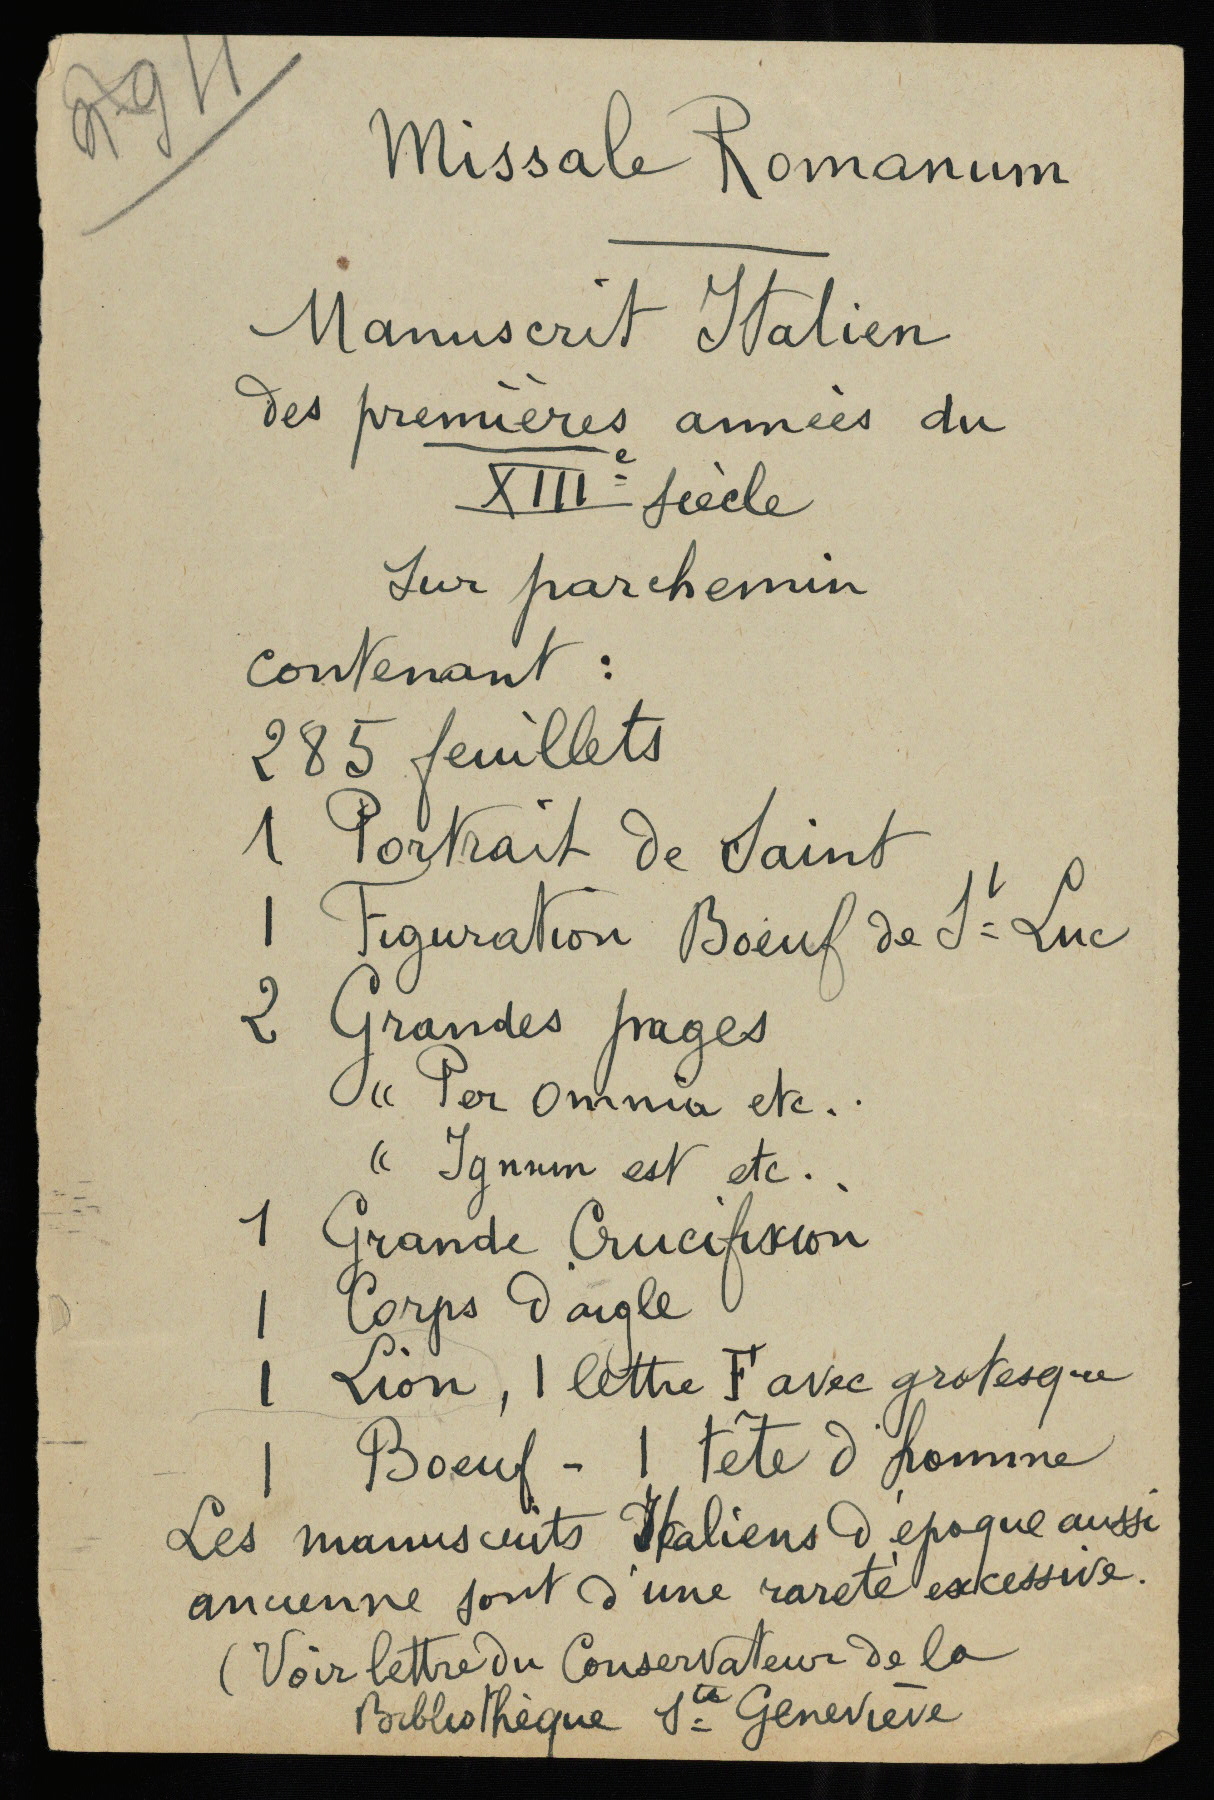 Missale Romanum
Manuscrit Italien
des premières années du
XIIIe siècle
sur parchemin
contenant :
285 feuillets
1 Portrait de Saint
1 Figuration Boeuf de St Luc
2 Grandes pages
" Per omnia etc..
" Ignum est etc..
1 Grande Crucifixion
1 Corps d'aigle
1 Lion, 1 lettre F avec grotesque
1 Boeuf - 1 tête d'homme
Les manuscrits Italiens d'époque aussi
ancienne sont d'une rareté excessive.
(Voir lettre du Conservateur de la
Bibliothèque Ste Geneviève